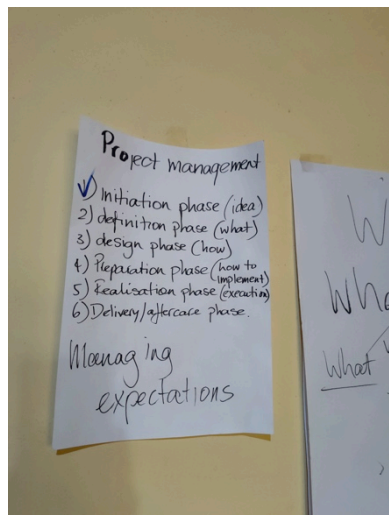 Project management
1) Initiation phase (idea)
2) definition phase (what)
3) design phase (how)
4) Preparation phase (how to
implement)
5) Realisation phase (execution)
6) Delivery/aftercare phase.
Managing
expectations
What